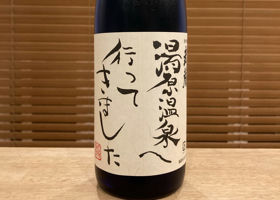 湯原温泉へ
行って
きました